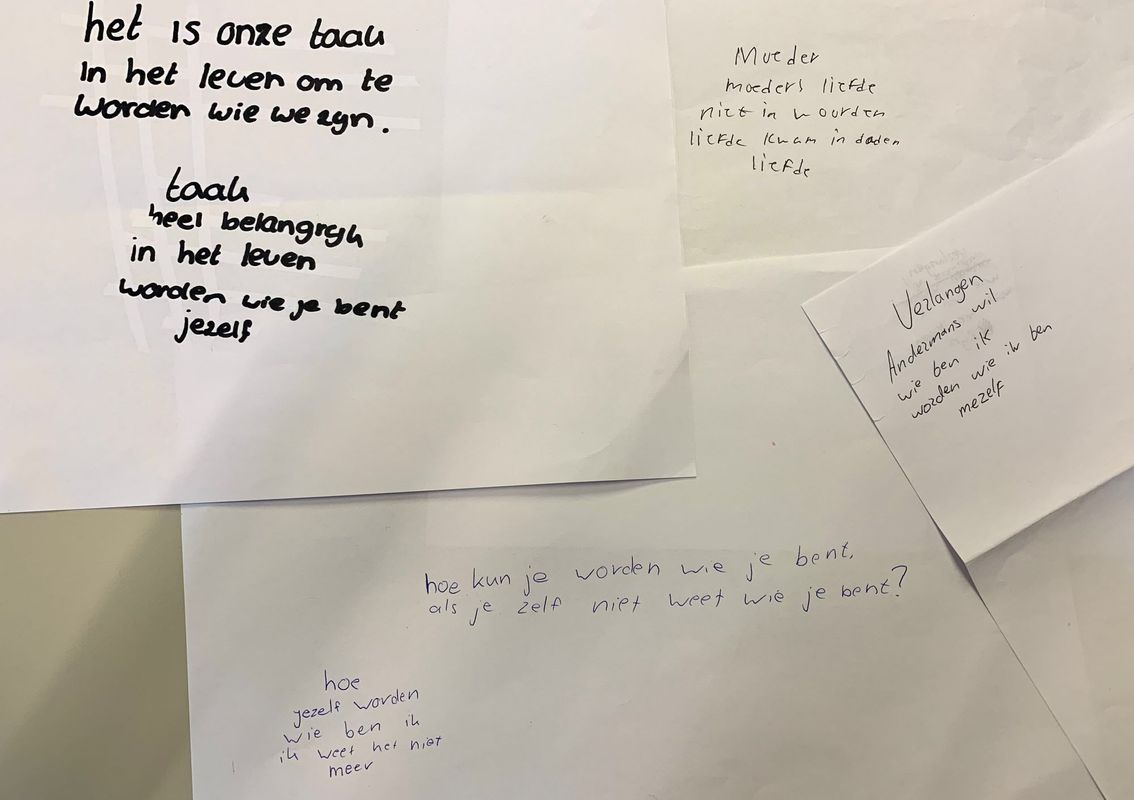 het is onze taak
in het leven om te
worden wie we zyn.
taak
heel belangryk
in het leven
worden wie je bent
jezelf
Moeder
moeders liefde
niet in woorden
liefde kwam in daden
liefde
Verlangen
Andermans wil
wie ben ik
worden wie ik ben
mezelf
hoe kun je worden wie je bent,
als je zelf niet weet wie je bent?
hoe
jezelf worden
wie ben ik
ik weet het niet
meer